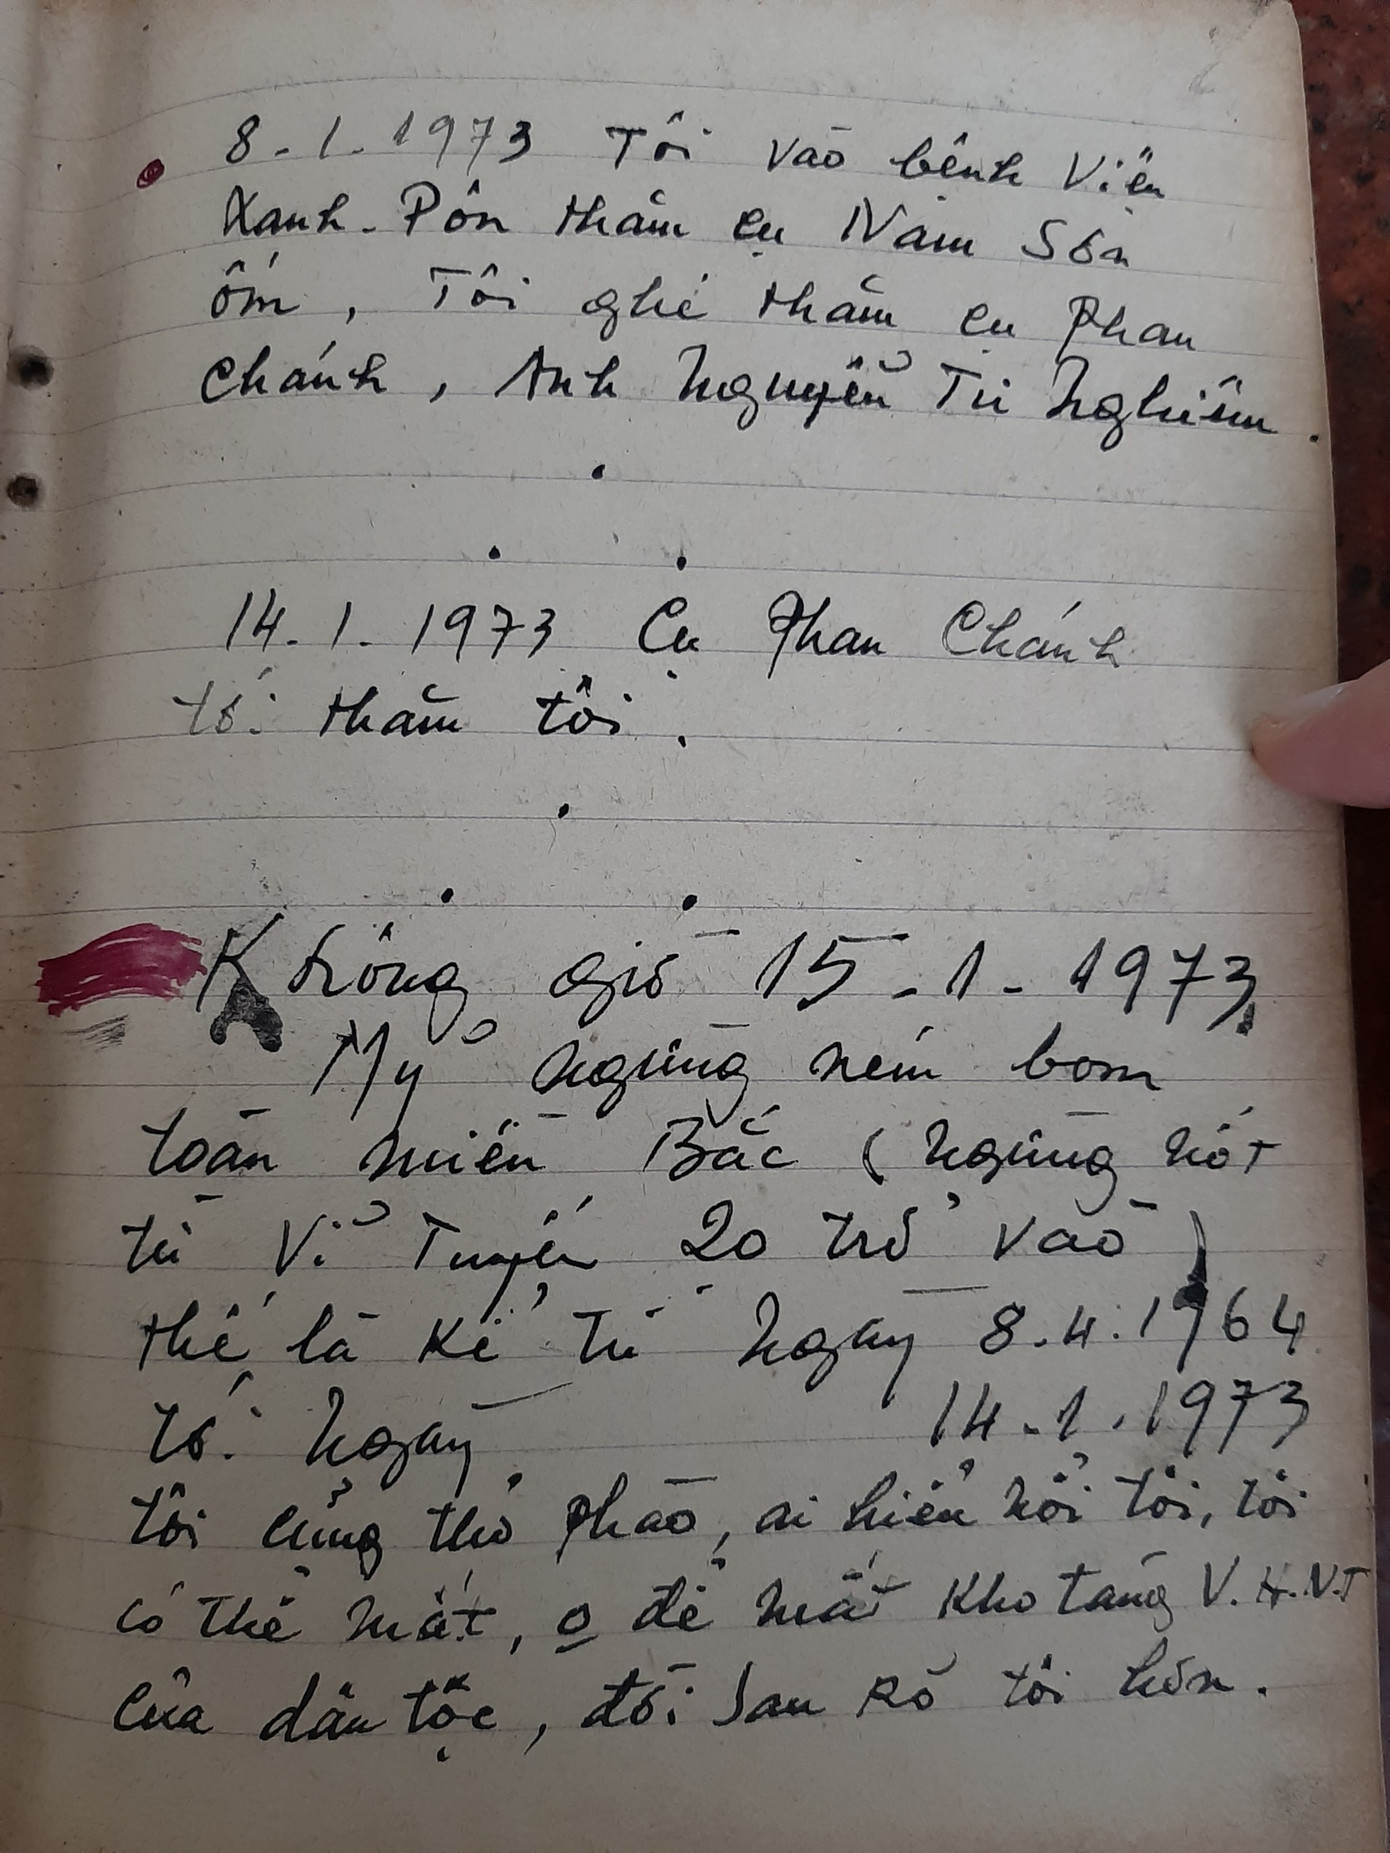 8-1-1973 Tôi vào bệnh Viện
Xanh-Pôn thăm cụ Nam Sơn
ốm, Tôi ghé thăm cụ Phan
Chánh, Anh Nguyễn Tư Nghiêm.
14-1-1973 Cụ Phan Chánh
tới thăm tôi.
K không giờ 15-1-1973,
Mỹ ngừng ném bom
toàn miền Bắc (ngừng nốt
từ Vĩ Tuyến 20 trở vào)
thế là kể từ ngày 8.4.1964
tới ngày 14-1-1973
tôi cũng thở phào, ai hiểu nổi tôi, tôi
có thể mất, o để mất kho tàng V.H.N.T
của dân tộc, đời sau rõ tôi hơn.